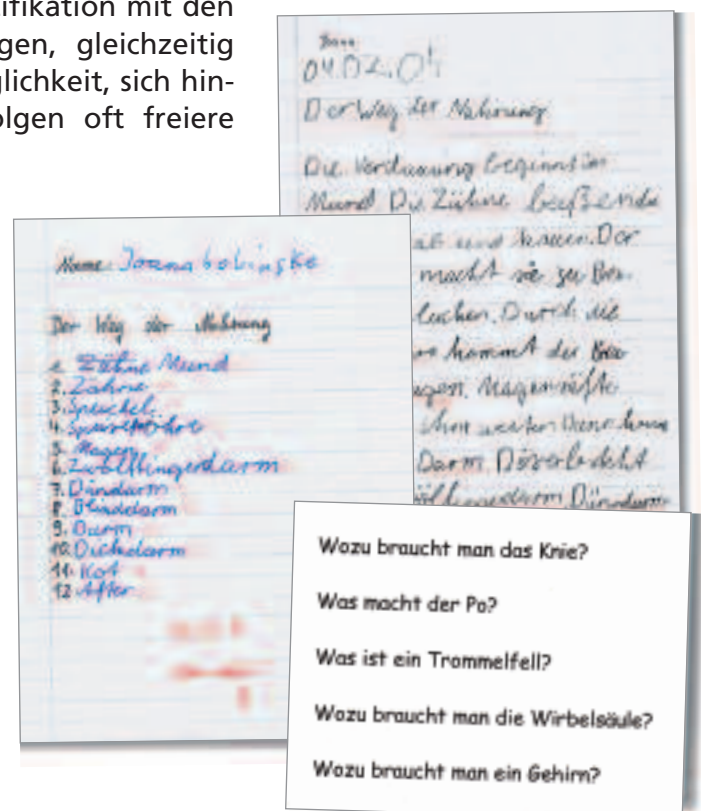 ifikation mit den
gen, gleichzeitig
glichkeit, sich hin-
lgen oft freiere
04.02.04
Der Weg der Nahrung
Die Verdauung beginnt im
Mund Die Zähne
ab und kauen. Der
macht sie zu Brei.
Durch die
kommt der Brei
agen. Magensäfte
ihn weiter Dann kann
Darm
Dünndarm
Name: Joana
Der Weg der Nahrung
1. Zähne Mund
2. Zähne
3. Speichel
4. Speiseröhre
5. Magen
6. Zwölffingerdarm
7. Dündarm
8. Blinddarm
9. Darm
10. Dickdarm
11. Kot
12 After
Wozu braucht man das Knie?
Was macht der Po?
Was ist ein Trommelfell?
Wozu braucht man die Wirbelsäule?
Wozu braucht man ein Gehirn?